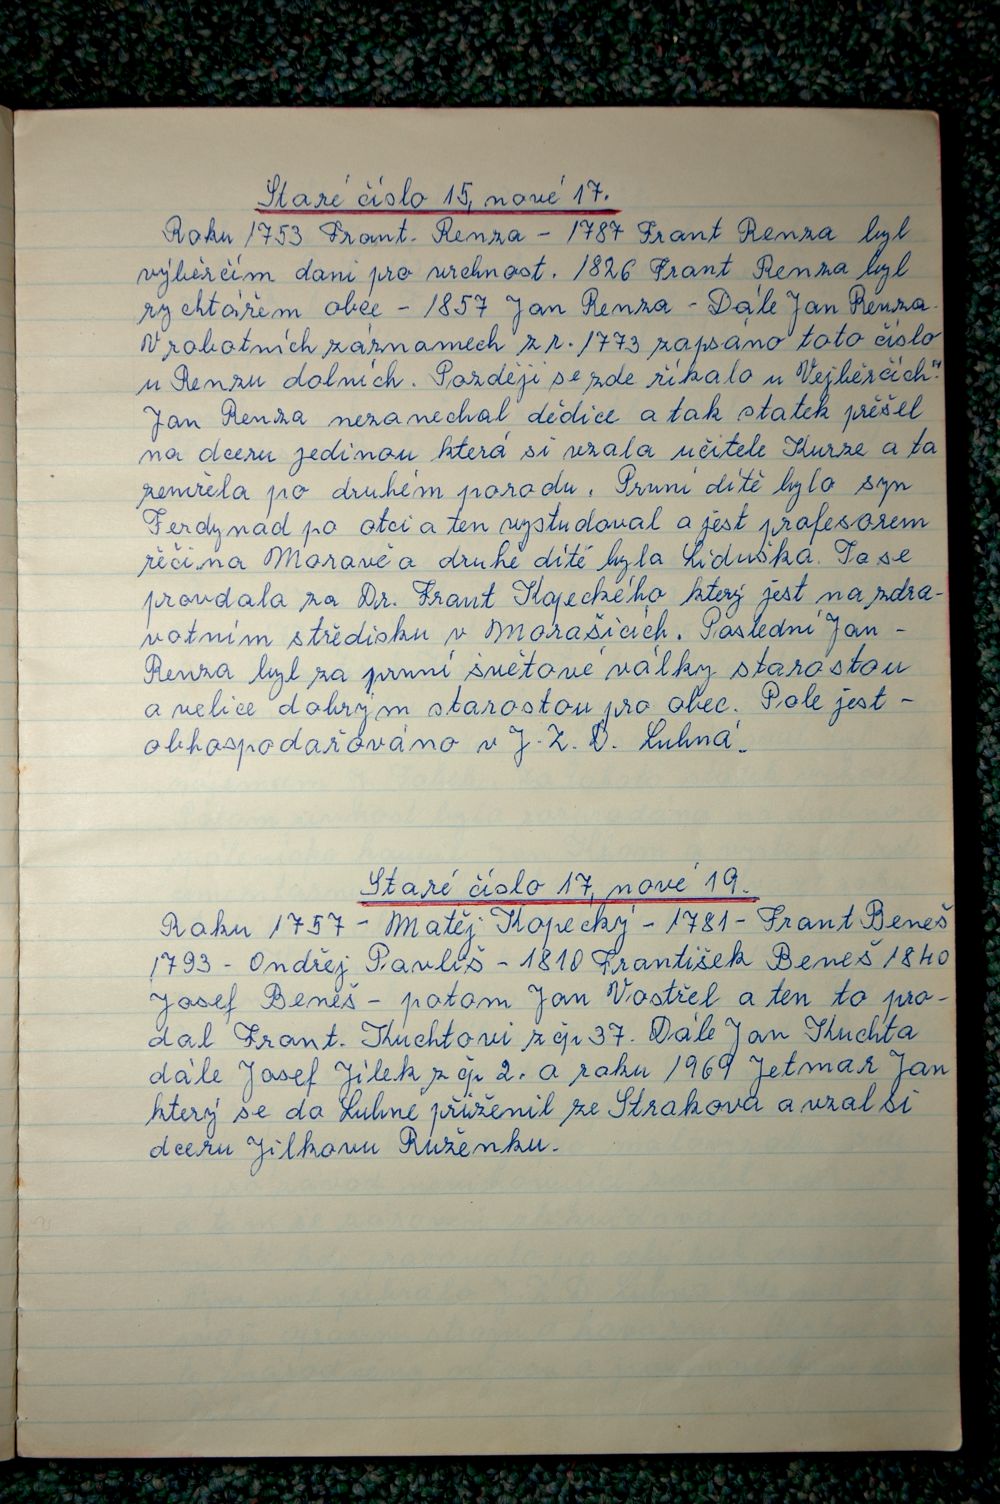 Staré číslo 15, nové 17.
Roku 1753 Frant. Renza - 1787 Frant Renza byl
výběrčím dani pro vrchnost. 1826 Frant Renza byl
rychtářem obce - 1857 Jan Renza - Dále Jan Renza.
V robotních záznamech z r. 1773 zapsáno toto číslo
u Renzu dolních. Později se zde říkalo u Vejběrčích"
Jan Renza nezanechal dědice a tak statek přěšel
na dceru jedinou která si vzala učitele Kurze a ta
zemřela po druhém porodu. První dítě bylo syn
Ferdynad po otci a ten vystudoval a jest profesorem
řěči na Moravě a druhé dítě byla Liduška. Ta se
provdala za Dr. Frant Kopeckého který jest na zdra-
votním střědisku v Morašicích. Poslední Jan -
Renza byl za první světové války starostou
a velice dobrým starostou pro obec. Pole jest -
obhospodařováno v J. Z. D. Lubná.
Staré číslo 17, nové 19.
Roku 1757 - Matěj Kopecký - 1781 - Frant Beneš
1793 - Ondřej Pavliš - 1810 František Beneš 1840
Josef Beneš - potom Jan Vostřel a ten to pro-
dal Frant. Kuchtovi z čp 37. Dále Jan Kuchta
dále Josef Jílek z čp 2. a roku 1969 Jetmar Jan
který se do Lubné přiženil ze Strakova a vzal si
dceru Jilkovu Ruženku.